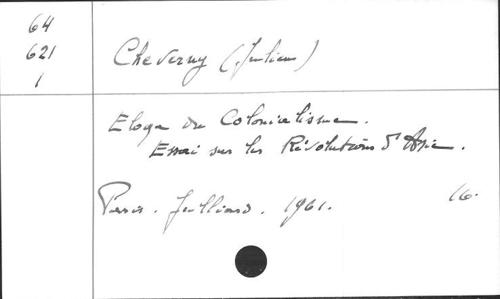 64
621
1
Cheverny (Julien)
Eloge du Colonialisme.
Essai sur les Révolutions d'Asie.
Paris. Julliard. 1961. 16.